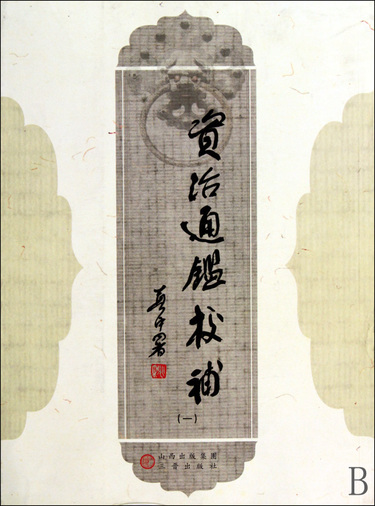 資治通鑑校補
(一)
山西出版集團
三晉出版社
B